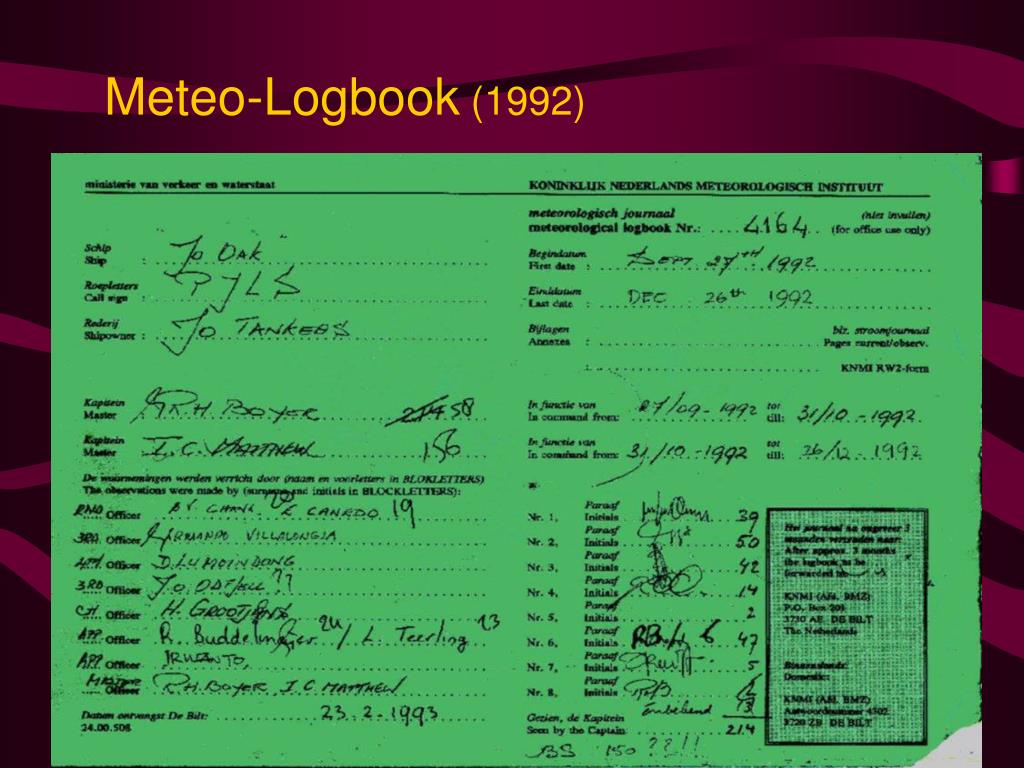 Meteo-Logbook (1992)
ministerie van verkeer en waterstaat
KONINKLIJK NEDERLANDS METEOROLOGISCH INSTITUUT
meteorologisch journaal (niet invullen)
meteorological logbook Nr.: 4164 (for office use only)
Schip
Ship : "JO OAK"
Begindatum
First date : SEPT 27th 1992
Roepletters
Call sign : PJLS
Einddatum
Last date : DEC 26th 1992
Rederij
Shipowner : JO TANKERS
Bijlagen blz. stroomjournaal
Annexes : Pages current/observ.
KNMI RW2-form
Kapitein
Master R.H. BOYER 58
In functie van 27/09-1992 tot 31/10-1992
In command from: till:
Kapitein
Master I.C. MATTHEW 156
In functie van 31/10-1992 tot 26/12-1992
In command from: till:
De waarnemingen werden verricht door (naam en voorletters in BLOKLETTERS)
The observations were made by (surname and initials in BLOCKLETTERS):
2ND Officer CANEDO 19
3RD Officer ARMANDO VILLALONGJA
4TH Officer D. LUMOINDONG
3RD Officer JO ODFJELL ??
CH Officer H. GROOTJANS
APP Officer R. Buddelmeijer 24 / L. Teerling 23
APP Officer IRWANTO
MASTER Officer R.H. BOYER I.C. MATTHEW
Paraaf
Nr. 1, Initials 39
Paraaf
Nr. 2, Initials 50
Paraaf
Nr. 3, Initials 42
Paraaf
Nr. 4, Initials 14
Paraaf
Nr. 5, Initials 2
Paraaf
Nr. 6, Initials 47
Paraaf
Nr. 7, Initials 5
Paraaf
Nr. 8, Initials
Onbekend 13
Gezien, de Kapitein
Seen by the Captain: 214
BS 150 ??!!
Het journaal na ongeveer 3
maanden verzenden naar:
After approx. 3 months
the logbook to be
forwarded to:
KNMI (Afd. BMZ)
P.O. Box 201
3730 AE DE BILT
The Netherlands
Binnenlands:
Domestic:
KNMI (Afd. BMZ)
Antwoordnummer 4502
3720 ZB DE BILT
Datum ontvangst De Bilt: 23-2-1993
24.00.508